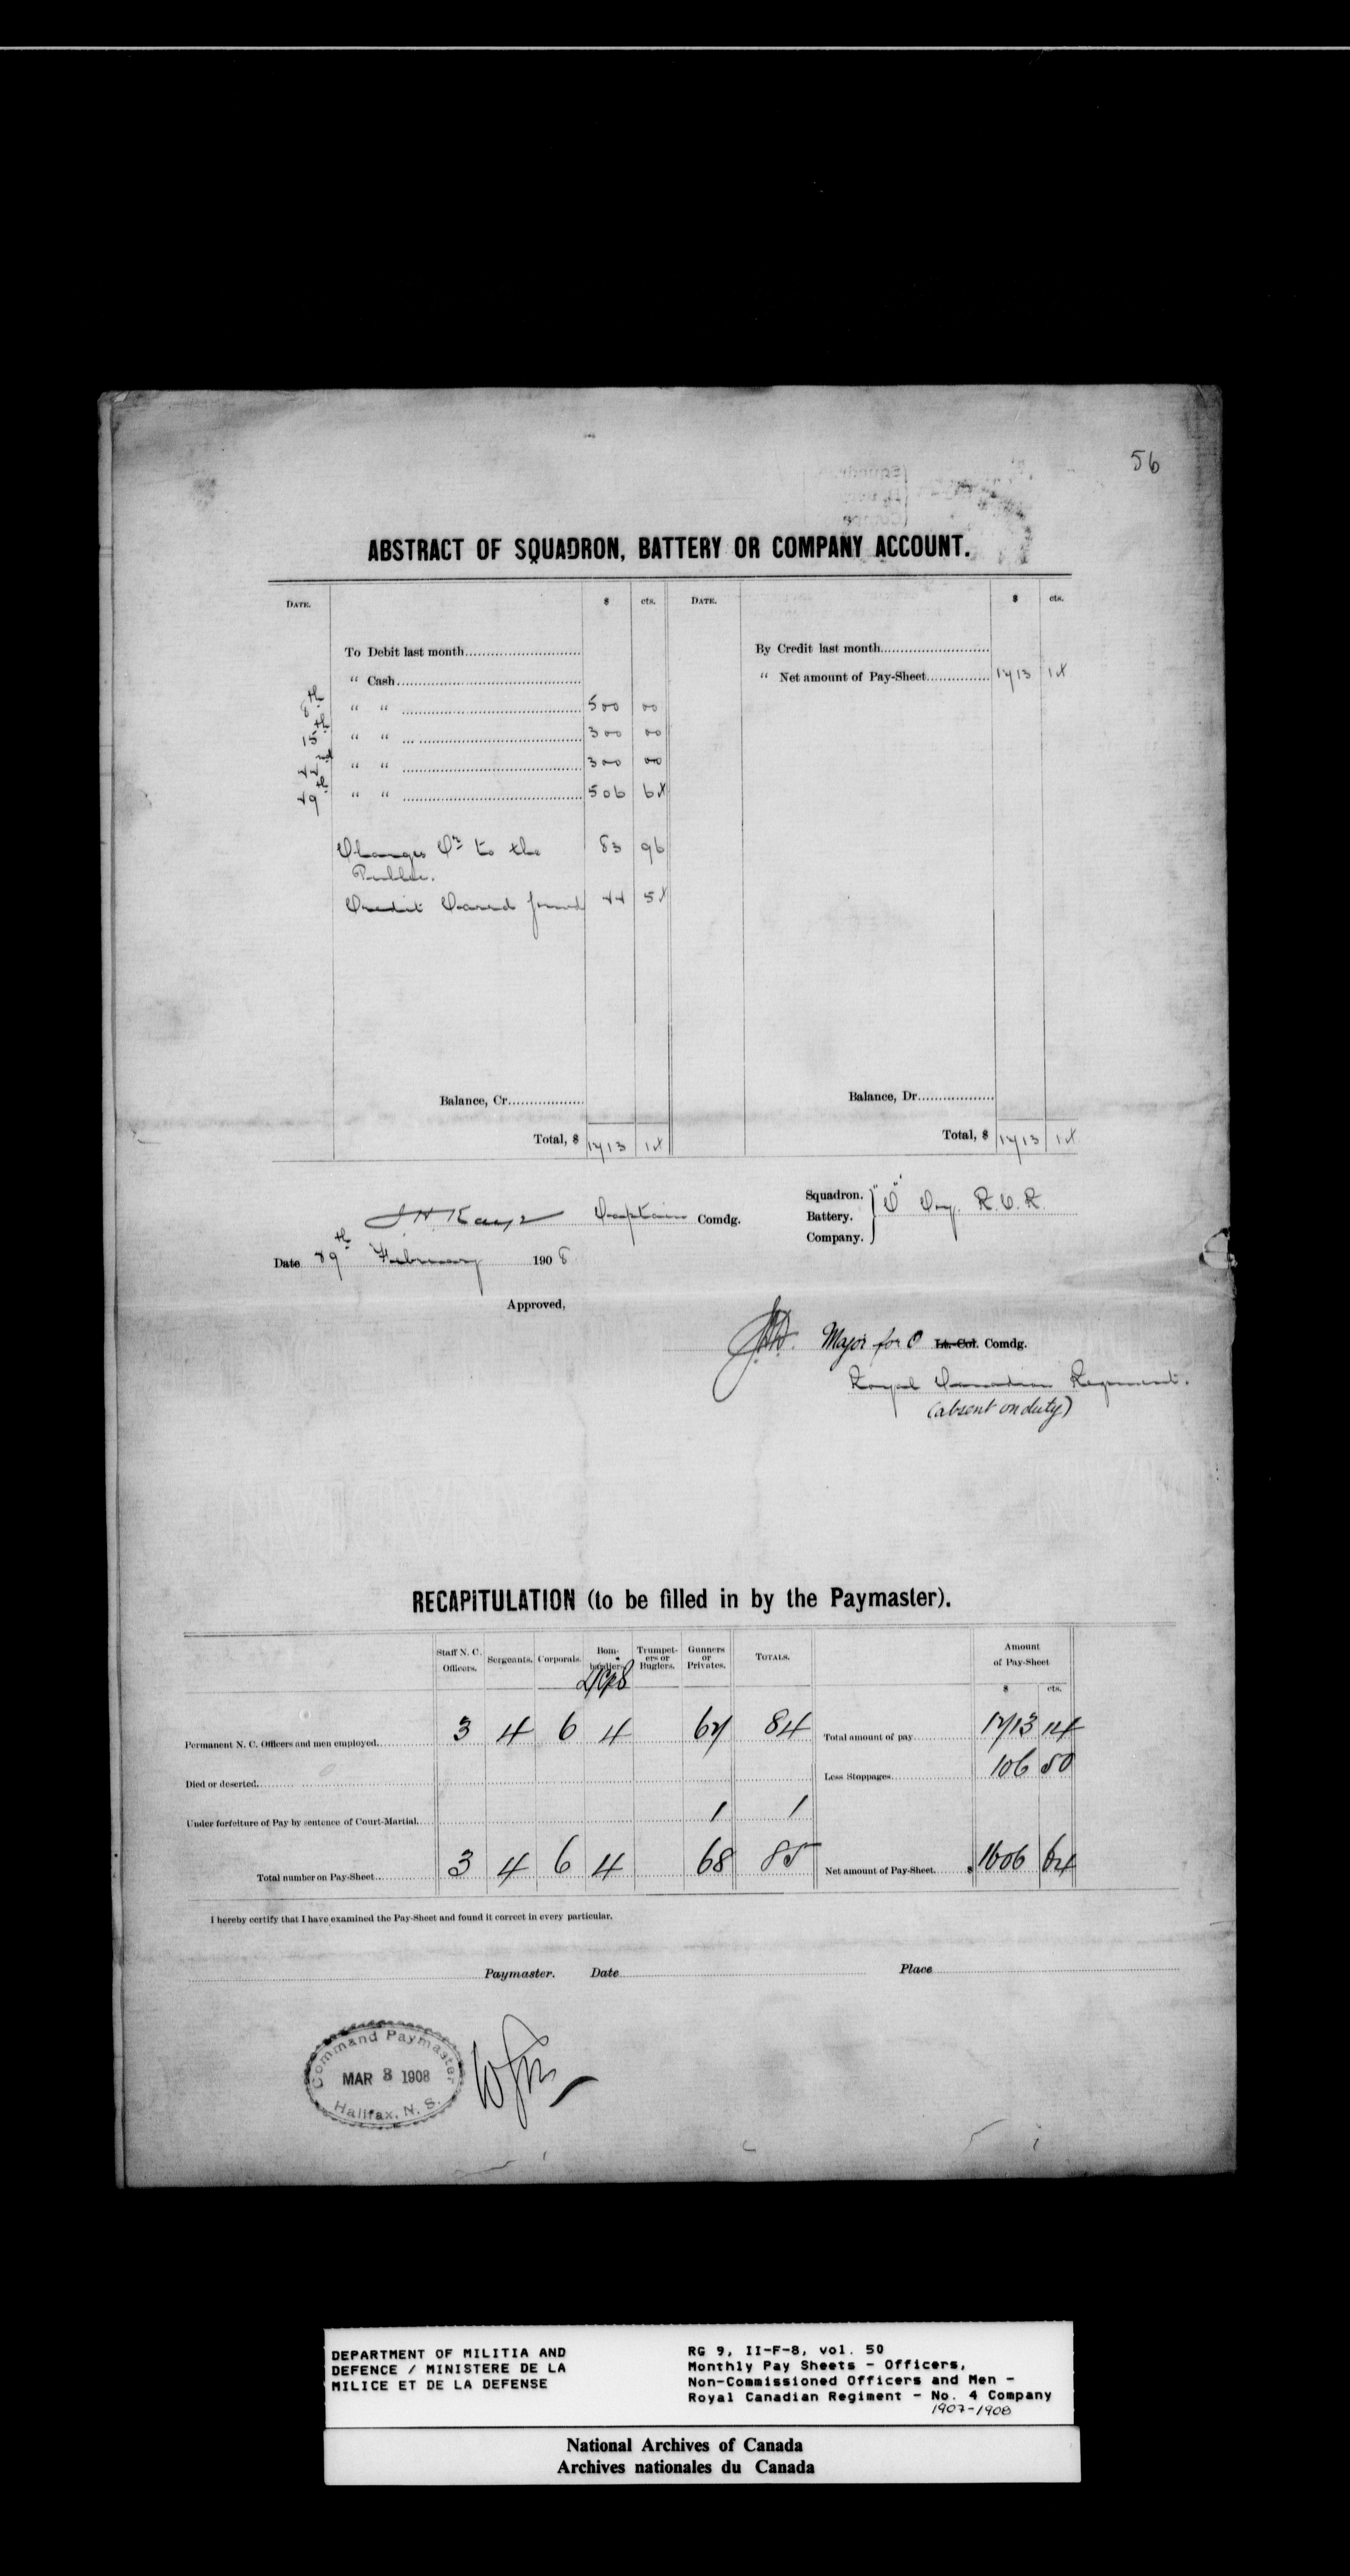 56
ABSTRACT OF SQUADRON, BATTERY OR COMPANY ACCOUNT.
DATE. $ cts. DATE. $ cts.
To Debit last month By Credit last month
" Cash " Net amount of Pay-Sheet 1713 14
8th " " 500 00
15th " " 300 00
22nd " " 300 00
29th " " 506 64
Charges Cr to the 83 96
Public.
Credit Card fund 22 54
Balance, Cr. Balance, Dr.
Total, $ 1713 14 Total, $ 1713 14
J H Kaye Captain Comdg.
Squadron.
Battery. "D" Coy. R.C.R.
Company.
Date 29th February 1908
Approved,
Major for O Lt.-Col. Comdg.
Royal Canadian Regiment.
(absent on duty)
RECAPITULATION (to be filled in by the Paymaster).
Staff N. C. Officers. Sergeants. Corporals. Bombardiers. Trumpeters or Buglers. Gunners or Privates. TOTALS. Amount of Pay-Sheet
$ cts.
Permanent N. C. Officers and men employed. 3 4 6 4 67 84 Total amount of pay 1713 14
Died or deserted. Less Stoppages 106 50
Under forfeiture of Pay by sentence of Court-Martial. 1 1
Total number on Pay-Sheet 3 4 6 4 68 85 Net amount of Pay-Sheet $ 1606 64
I hereby certify that I have examined the Pay-Sheet and found it correct in every particular.
Paymaster. Date Place
Command Paymaster
MAR 3 1908
Halifax, N. S.
DEPARTMENT OF MILITIA AND
DEFENCE / MINISTERE DE LA
MILICE ET DE LA DEFENSE
RG 9, II-F-8, vol. 50
Monthly Pay Sheets - Officers,
Non-Commissioned Officers and Men -
Royal Canadian Regiment - No. 4 Company
1907-1908
National Archives of Canada
Archives nationales du Canada